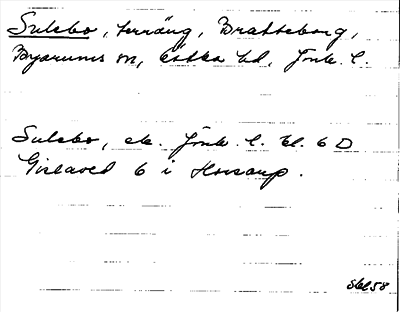 Sulebo, terräng, Bratteborg,
Byarums sn, Östbo hd, Jönk. l.
Sulebo, ek. Jönk. l. bl. 6 D
Gislaved 6 i Horsarp.